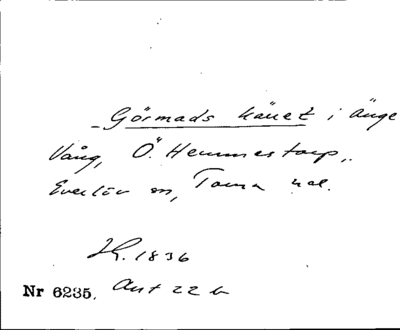 Görmads käret i änge
Vång, Ö. Hemmestorp,
Everlöv sn, Torna hd.
H. 1836
Nr 6235. Akt 22 b